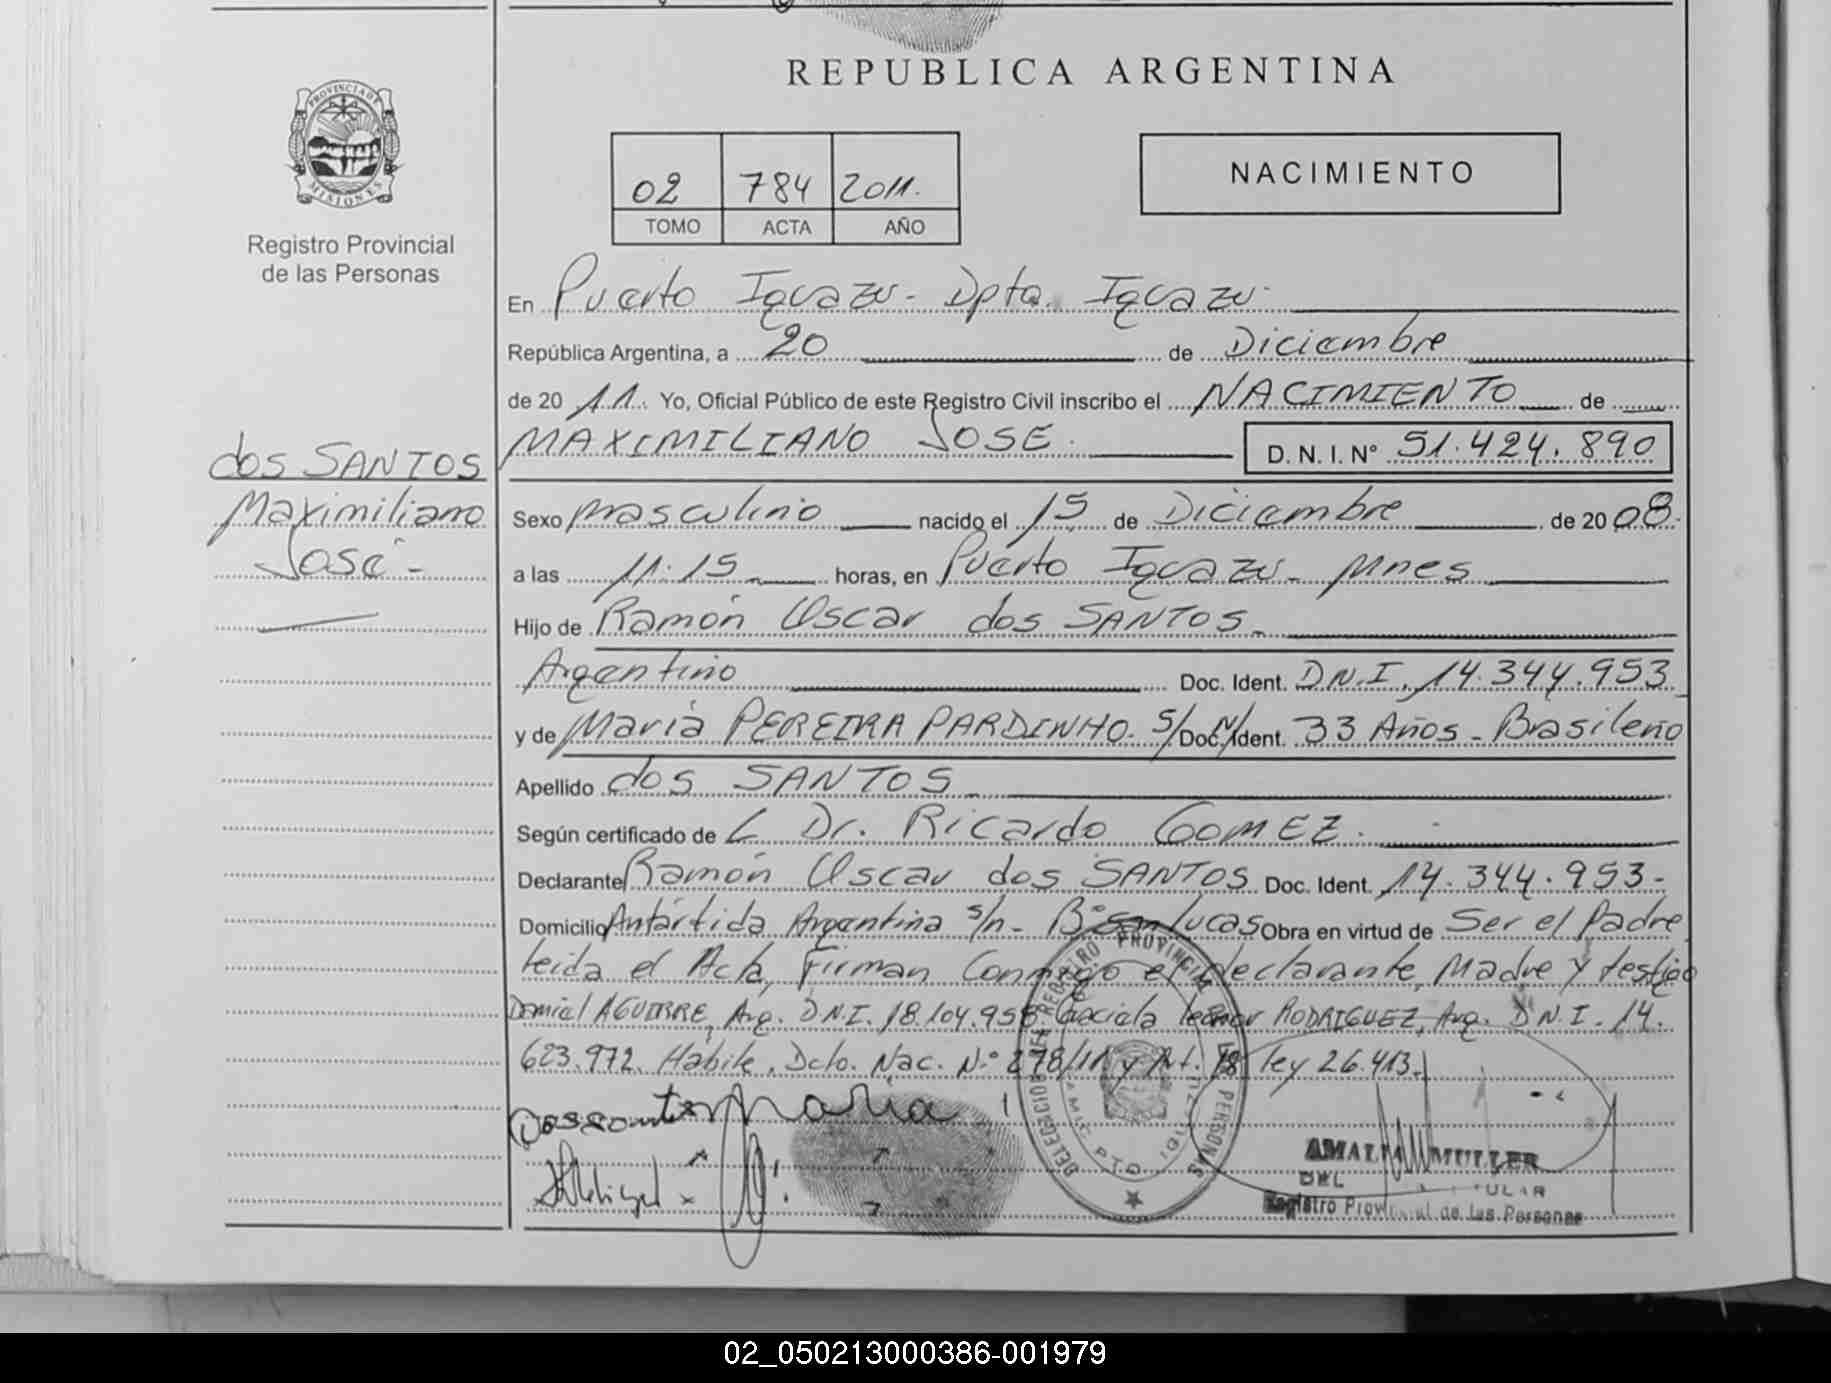 REPUBLICA ARGENTINA
PROVINCIA DE
MISIONES
Registro Provincial
de las Personas
02 784 2011.
TOMO ACTA AÑO
NACIMIENTO
En Puerto Iguazu - Dpto. Iguazu -
República Argentina, a 20 de Diciembre
de 20 11. Yo, Oficial Público de este Registro Civil inscribo el NACIMIENTO de
MAXIMILIANO JOSE. D. N. I. Nº 51.424.890
dos SANTOS
Maximiliano
José -
Sexo masculino nacido el 15 de Diciembre de 20 08.
a las 11:15 horas, en Puerto Iguazu - Mnes
Hijo de Ramón Oscar dos SANTOS -
Argentino Doc. Ident. D.N.I. 14.344.953
y de Maria PEREIRA PARDINHO. S/N Doc. Ident. 33 Años - Brasileño
Apellido dos SANTOS -
Según certificado de L Dr. Ricardo GOMEZ.
Declarante Ramón Oscar dos SANTOS Doc. Ident. 14.344.953 -
Domicilio Antártida Argentina s/n - Bº San Lucas Obra en virtud de Ser el Padre
leida el Acta, Firman Conmigo el declarante, Madre y testigo
Daniel AGUIRRE, Arg. D.N.I. 18.104.958 Graciela Leonor RODRIGUEZ, Arg. D.N.I. 14.
623.972. Habilt. Dcto. Nac. Nº 278/11 y Art. 18 ley 26.413.
Dossantos Maria
DELEGACION DEL REGISTRO PROVINCIAL DE LAS PERSONAS
PTO. IGUAZU
AMALIA MULLER
DEL TULAR
Registro Provincial de las Personas
02_050213000386-001979